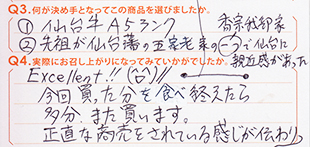 Q3.何が決め手となってこの商品を選びましたか。
①仙台牛A5ランク
②先祖が仙台藩の五家老の一つで仙台に
親近感があった
Q4.実際にお召し上がりになってみていかがでしたか。
Excellent!! (^○^)//
今回買った分を食べ終えたら
多分、また買います。
正直な商売をされている感じが伝わり。